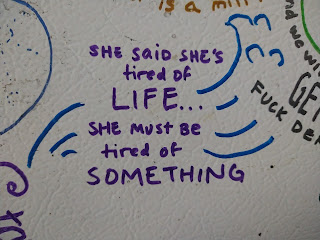 is a
SHE SAID SHE'S
tired of
LIFE...
SHE MUST BE
tired of
SOMETHING
and we
FUCK